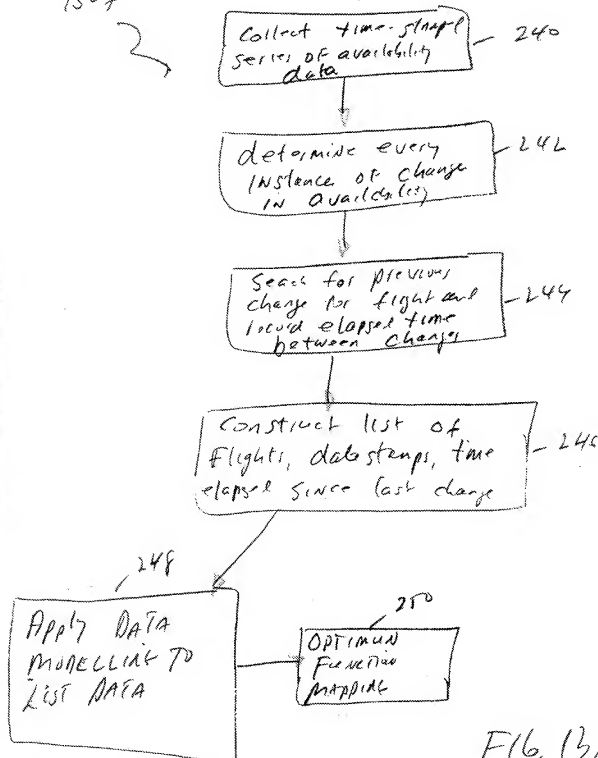 Collect time-stamped
240
series of availability
data
determine every
242
instance of change
in availability
Search for previous
change for flight and
244
record elapsed time
between changes
Construct list of
flights, datestamps, time
246
elapsed since last change
248
Apply DATA
MODELLING TO
LIST DATA
250
OPTIMUN
FUNCTION
MAPPING
FIG. 13